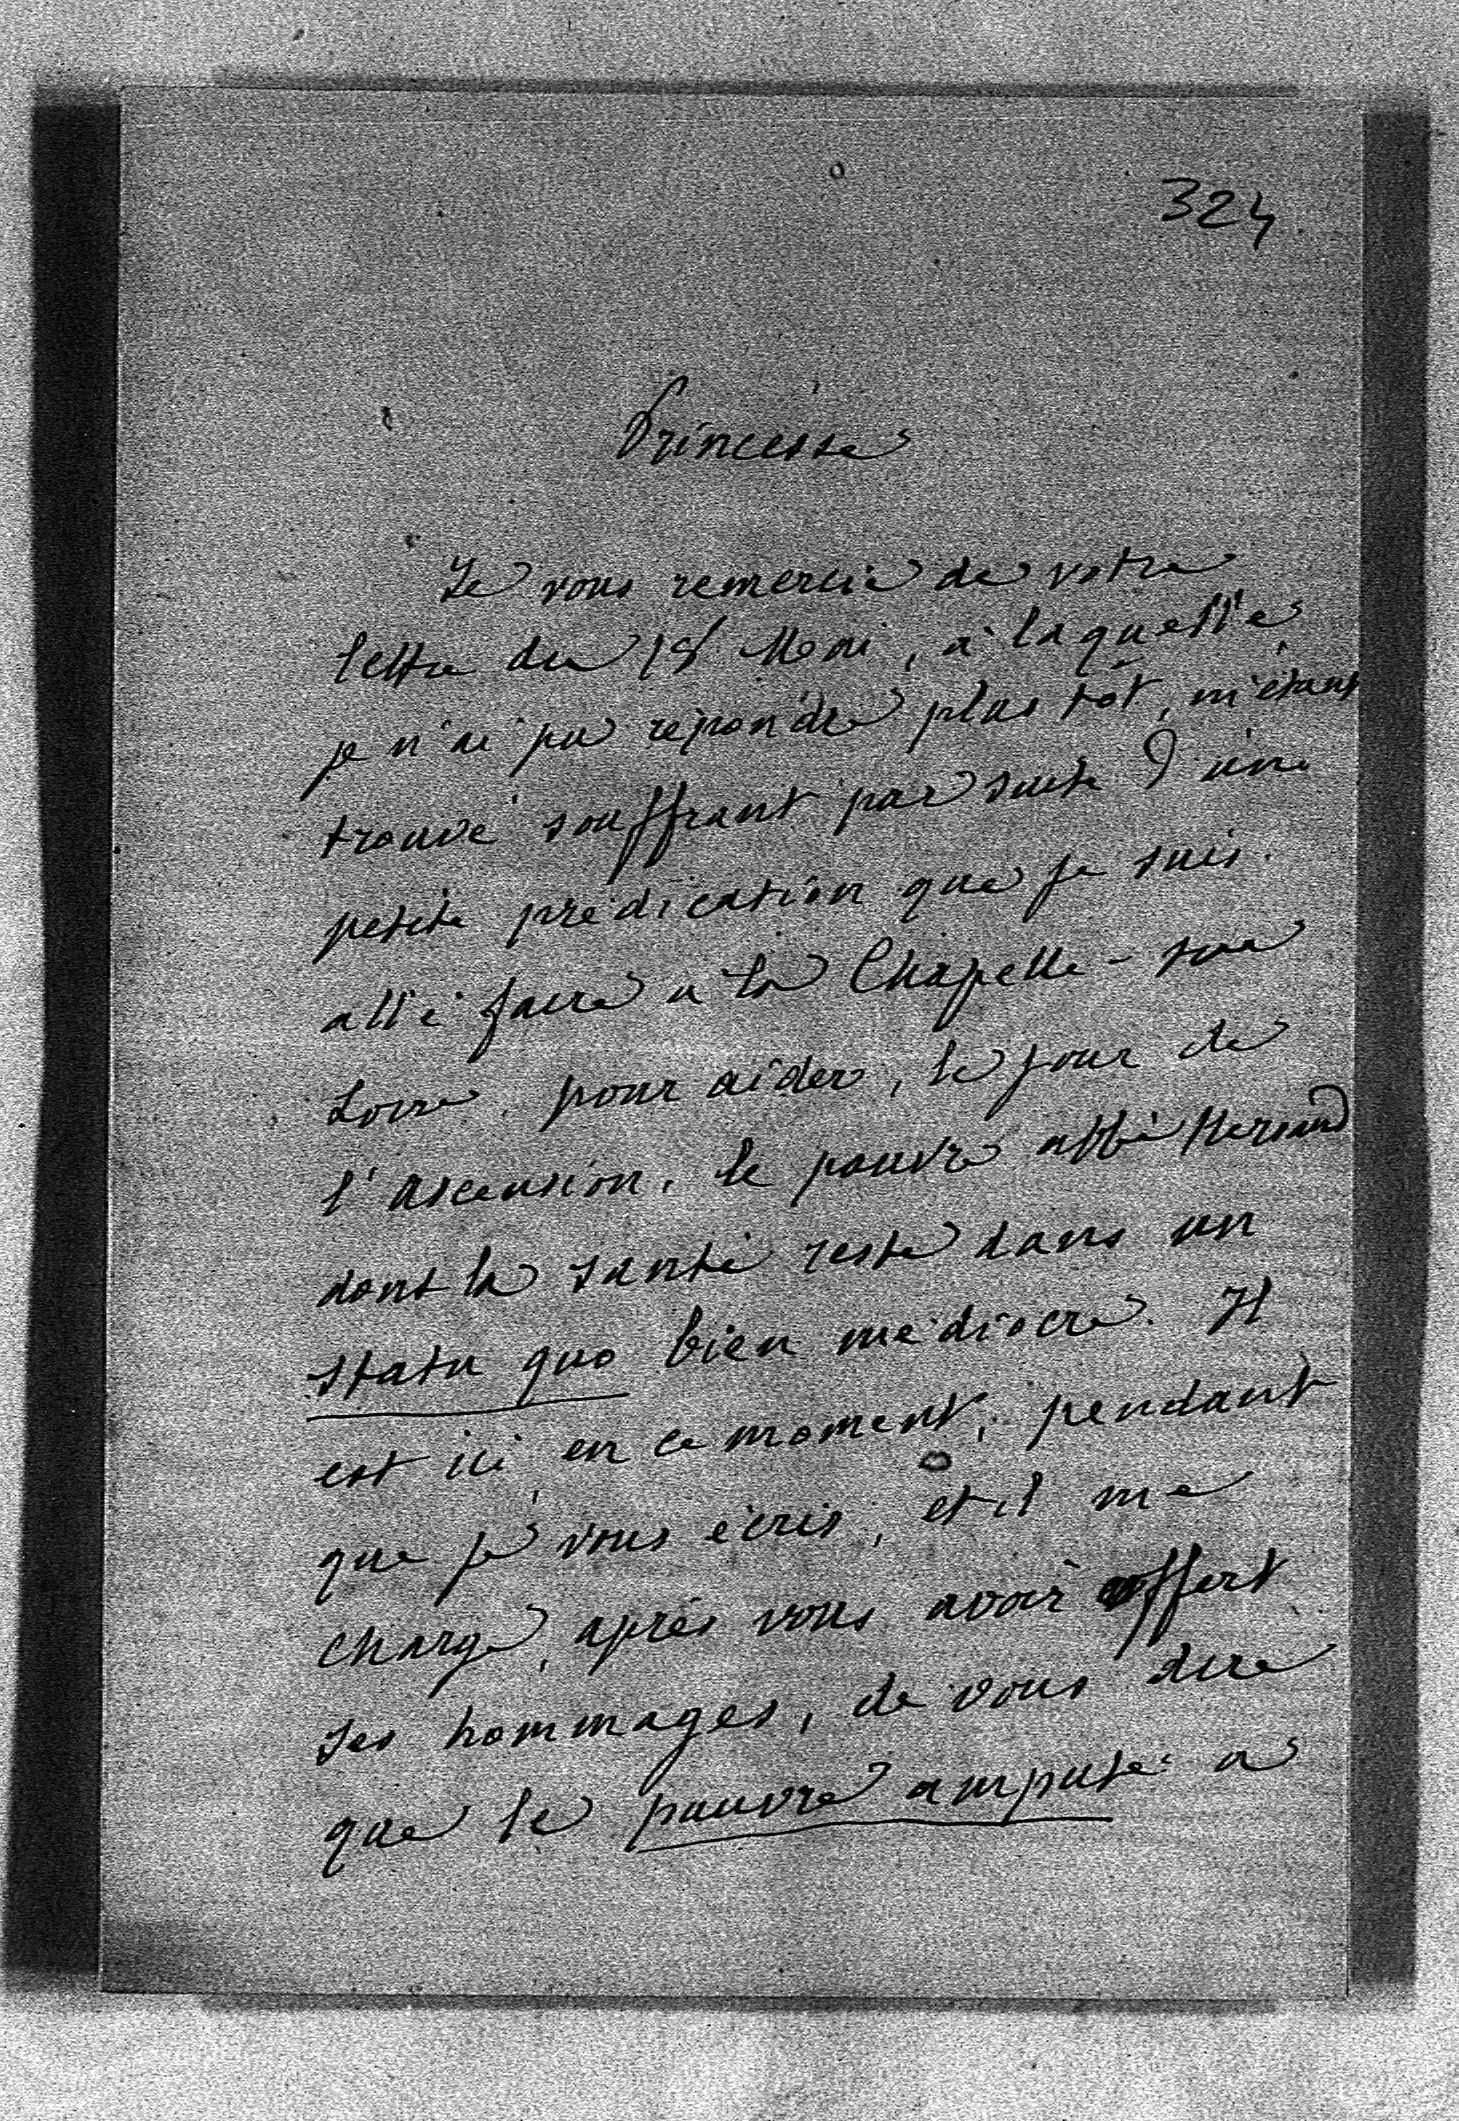 324
Princesse
Je vous remercie de votre
lettre du 18 Mai, à laquelle
je n'ai pu répondre plus tôt, m'étant
trouvé souffrant par suite d'une
petite prédication que je suis
allé faire à la Chapelle-sur
Loire, pour aider, le jour de
l'ascension, le pauvre abbé
dont la santé reste dans un
statu quo bien médiocre. Il
est ici en ce moment, pendant
que je vous écris, et il me
charge, après vous avoir offert
ses hommages, de vous dire
que le pauvre amputé a